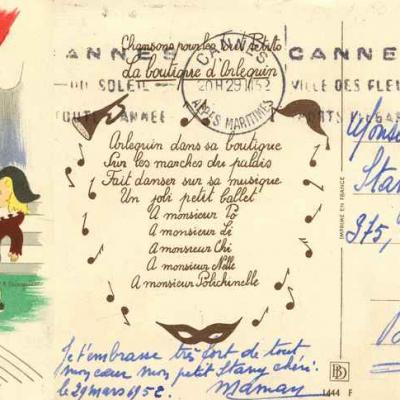 Chansons pour les tout Petits
La boutique d'Arlequin
CANNES
ANNES
DU SOLEIL
TOUTE L'ANNEE
20H29
1952
ALPES MARITIMES
CANNES
VILLE DES FLEU
Arlequin dans sa boutique
Sur les marches du palais
Fait danser sur sa musique
Un joli petit ballet
A monsieur Po
A monsieur Li
A monsieur Chi
A monsieur Nelle
A monsieur Polichinelle
Je t'embrasse très fort de tout
mon cœur mon petit Stany chéri.
le 29 mars 1952. Maman
IMPRIMÉ EN FRANCE
1444 F
Monsie
Stan
375,